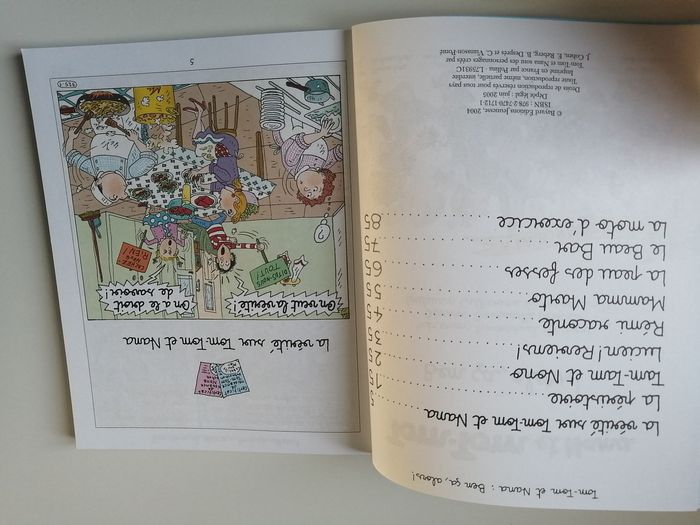 Tom-Tom et Nana : Ben ça, alors!
La vérité sur Tom-Tom et Nana 5
La péristoire 15
Tam-Tam et Nono 25
Lucien! Reviens! 35
Rémi raconte 45
Mamma 55
La peau des fesses 65
Le Beau Bar 75
La moto d'exercice 85
© Bayard Éditions Jeunesse, 2004
ISBN : 978-2-7470-1712-1
Dépôt légal : juin 2005
Droits de reproduction réservés pour tous pays
Toute reproduction, même partielle, interdite
Imprimé en France par Pollina - L75931C
Tom-Tom et Nana sont des personnages créés par
J. Cohen, E. Reberg, B. Després et C. Viansson-Ponté
La vérité sur Tom-Tom et Nana
On veut la vérité!
On a le droit
de savoir!
DITES-NOUS
TOUT!
RIEN!
5